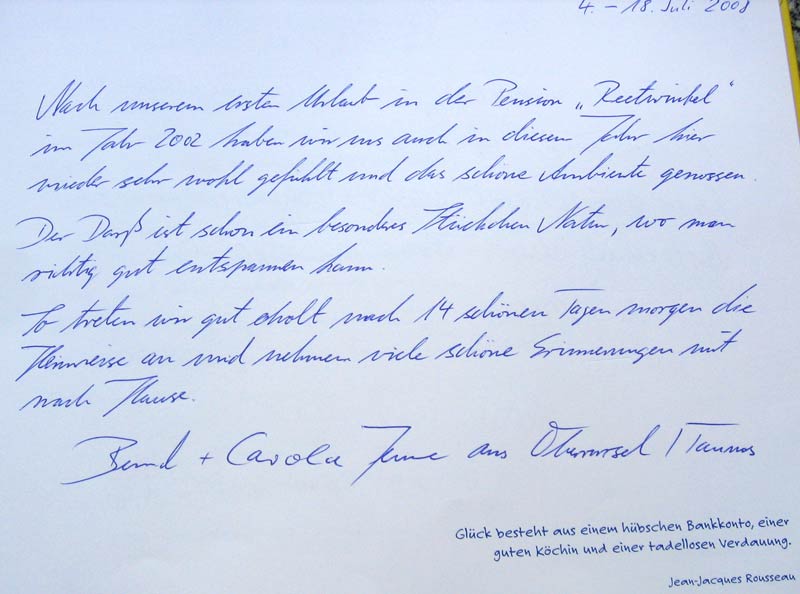 4. – 18. Juli 2008
Nach unserem ersten Urlaub in der Pension „Reetwinkel“
im Jahr 2002 haben wir uns auch in diesem Jahr hier
wieder sehr wohl gefühlt und das schöne Ambiente genossen.
Der Darß ist schon ein besonderes Stückchen Natur, wo man
richtig gut entspannen kann.
So treten wir gut erholt nach 14 schönen Tagen morgen die
Heimreise an und nehmen viele schöne Erinnerungen mit
nach Hause.
Bernd + Carola aus Oberursel / Taunus
Glück besteht aus einem hübschen Bankkonto, einer
guten Köchin und einer tadellosen Verdauung.
Jean-Jacques Rousseau